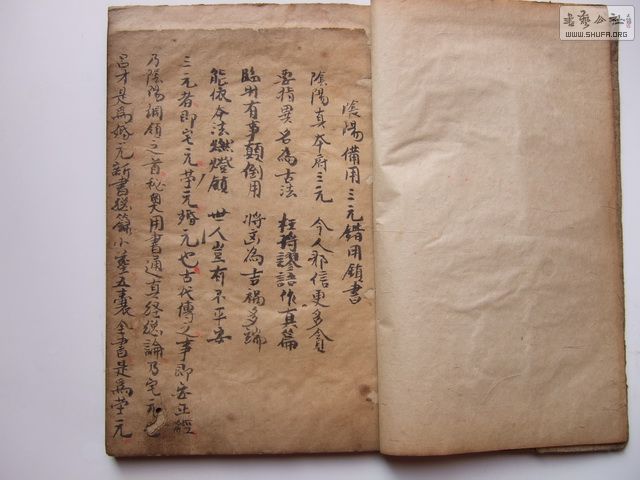 陰陽備用三元錯用鎖書
陰陽真本府三元 今人那信更多貪
要指異名為古法 狂將謬語作真篇
臨用有事顛倒用 將凶為吉禍多端
能依本法燃燈鎖 世人豈有不平安
三元者即宅元茔元婚元也古代傳之事即宅正經
乃陰陽綱領之首秘奧用書通真経総論乃宅元也
呂才是爲婚元新書総錄小墓五囊全書是爲茔元
書藝公社
WWW.SHUFA.ORG